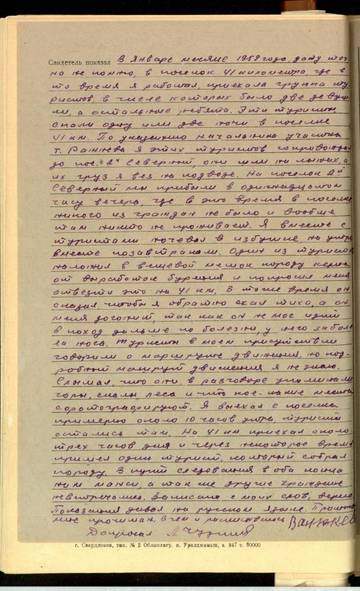 Свидетель показал В январе месяце 1959 года дату точ-
но не помню, в поселок 41 километр где в
это время я работал, приехала группа ту-
ристов, в числе которых было две девуш-
ки, а остальные ребята. Эти туристы
спали одну или две ночи в поселке
41 км. По указанию начальника участка
т. Ряжнева я этих туристов сопровождал
до пос. 2й Северный, они шли на лыжах, а
их груз я вез на подводе. На поселок 2й
Северный мы прибыли в одиннадцатом
часу вечера, где в это время в поселке
никого из граждан не было и вообще
там никто не проживает. Я вместе с
туристами ночевал в избушке, на утро
вместе позавтракали. Один из туристов
наложил в вещевой мешок породу камня
от выработок бурения и попросил меня
отвезти это на 41 км. В тоже время он
сказал чтобы я обратно ехал тихо, а он
меня догонит так как он не мог идти
в поход дальше по болезни, у него забол-
ела нога. Туристы в моем присутствии
говорили о маршруте движения, но под-
робный маршрут движения я не знаю.
Слышал, что они в разговоре упоминали
горы, скалы, леса и что кое-какие места
сфотографируют. Я выехал с поселка
примерно около 10 часов утра, туристы
остались там. На 41 км приехал около
трех часов дня и через некоторое время
пришел один турист, который собрал
породу. В пути следования в оба конца
ни манси, а так же другие граждане
не встречались. Записано с моих слов, верно.
Показания давал на русском языке. Протокол
мне прочитан. В чем и расписываюсь
Допросил
г. Свердловск, тип. № 2 Облполигр. п. Уралмашзавод, з. 847 т. 50000